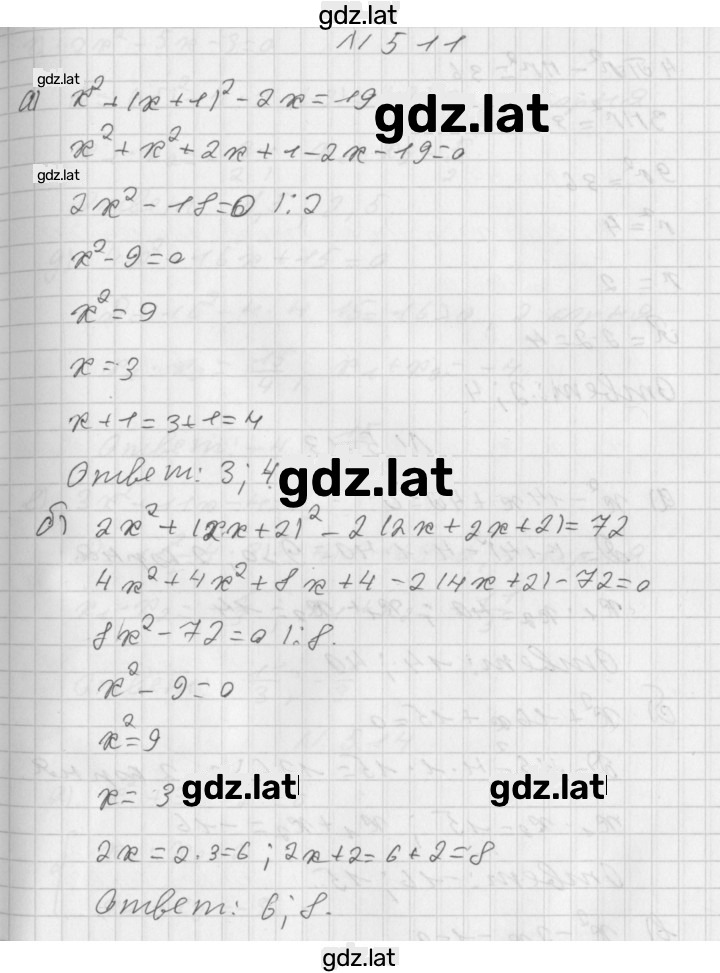 gdz.lat
N 511
gdz.lat
а) x² + (x+1)² - 2x = 19
gdz.lat
x² + x² + 2x + 1 - 2x - 19 = 0
gdz.lat
2x² - 18 = 0 |:2
x² - 9 = 0
x² = 9
x = 3
x + 1 = 3 + 1 = 4
Ответ: 3; 4.
gdz.lat
б) 2x² + (2x+2)² - 2(2x + 2x + 2) = 72
4x² + 4x² + 8x + 4 - 2(4x + 2) - 72 = 0
8x² - 72 = 0 |:8.
x² - 9 = 0
x² = 9
x = 3
gdz.lat
gdz.lat
2x = 2·3 = 6; 2x + 2 = 6 + 2 = 8
Ответ: 6; 8.
gdz.lat